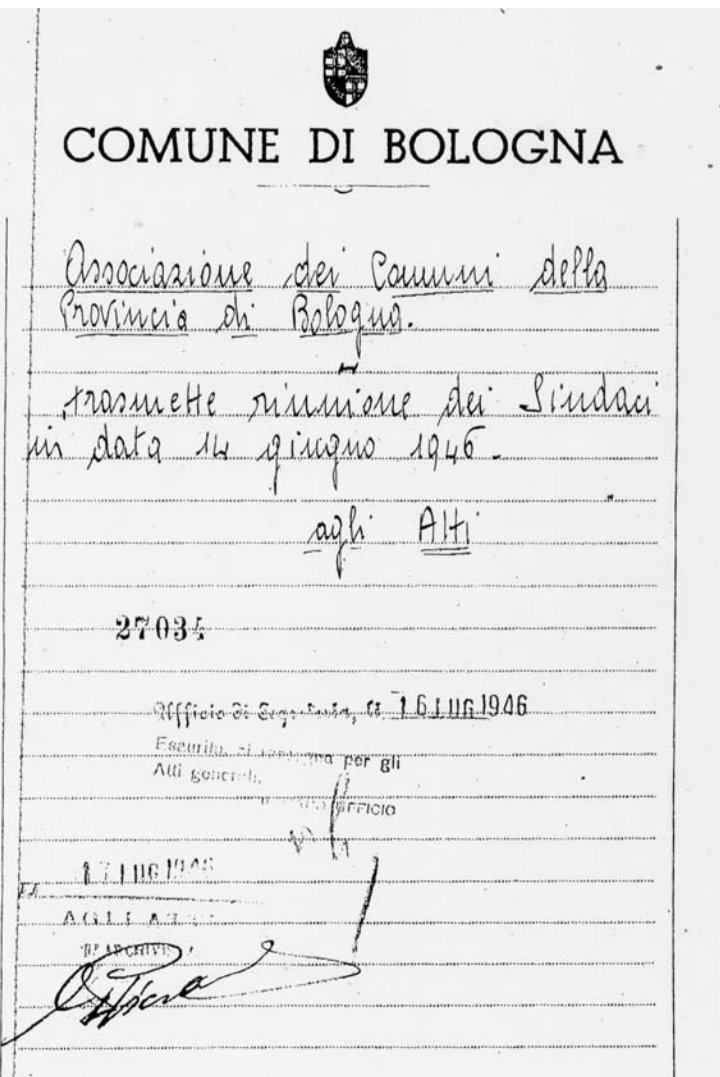 COMUNE DI BOLOGNA
Associazione dei Comuni della
Provincia di Bologna.
trasmette riunione dei Sindaci
in data 14 giugno 1946.
agli Atti
27034
Ufficio di Segreteria, li 16 LUG 1946
Esaurita, si per gli
Atti generali
UFFICIO
17 LUG 1946
AGLI ATTI
L'ARCHIVISTA